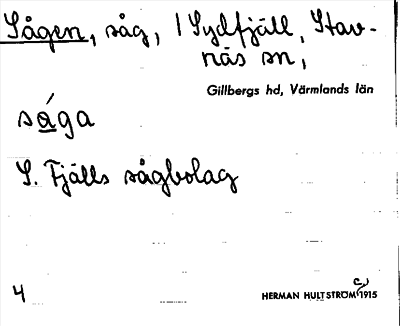 Sågen, såg, i Sydfjäll, Stav-
näs sn,
Gillbergs hd, Värmlands län
sága
S. Fjälls sågbolag
4
HERMAN HULTSTRÖM 1915